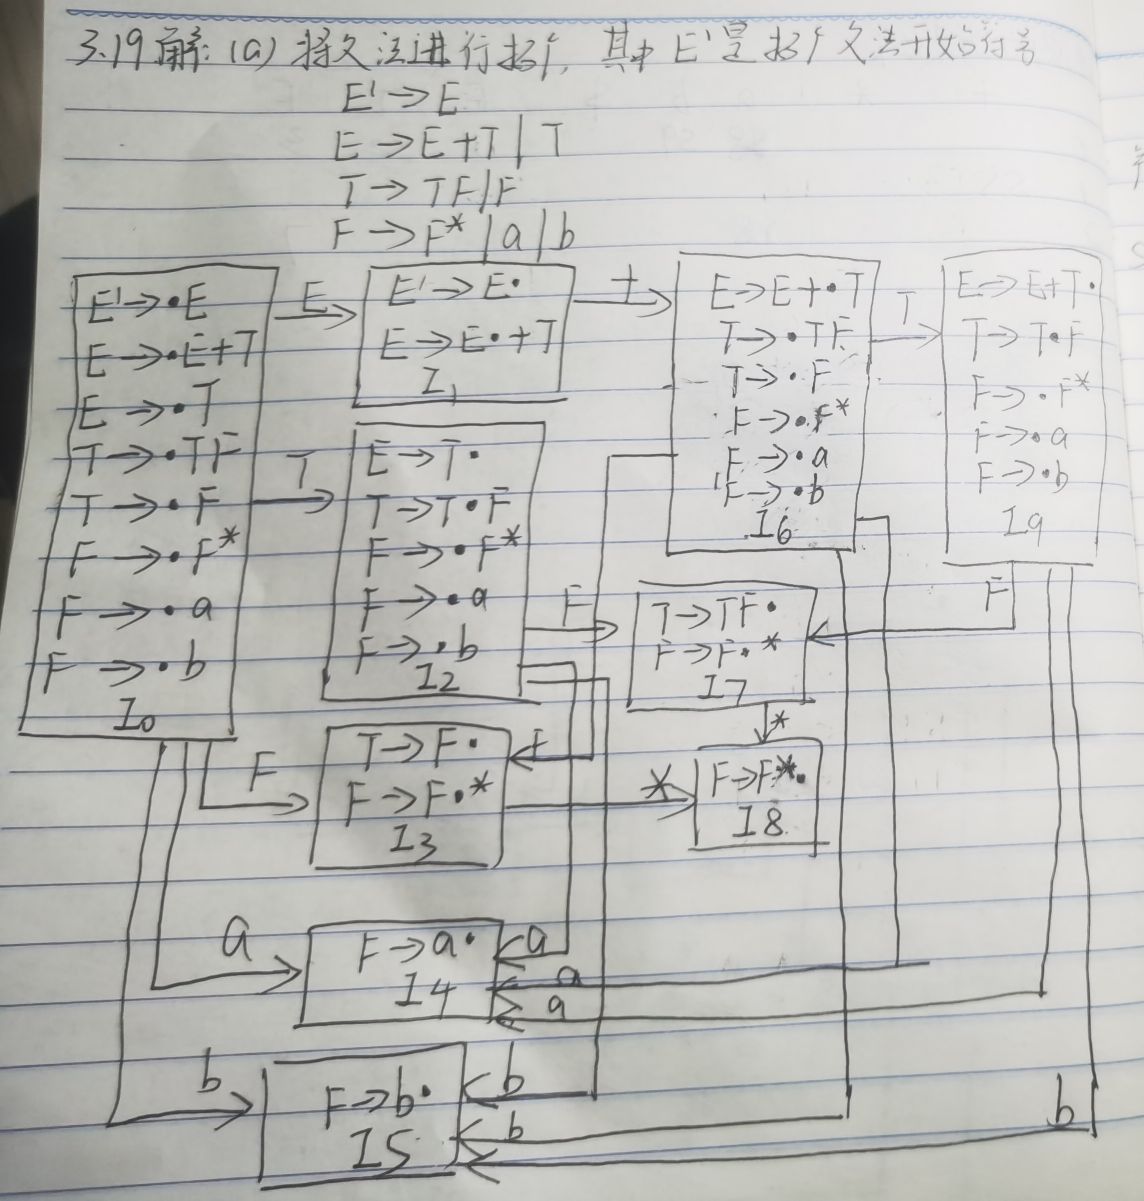 3.19解: (a) 将文法进行拓广, 其中 E'是拓广文法开始符号
E' → E
E → E+T | T
T → TF | F
F → F* | a | b
E' → ·E
E → ·E+T
E → ·T
T → ·TF
T → ·F
F → ·F*
F → ·a
F → ·b
I0
E
E' → E·
E → E·+T
I1
+
E → E+·T
T → ·TF
T → ·F
F → ·F*
F → ·a
F → ·b
I6
T
E → E+T·
T → T·F
F → ·F*
F → ·a
F → ·b
I9
T
E → T·
T → T·F
F → ·F*
F → ·a
F → ·b
I2
F
T → TF·
F → F·*
I7
F
*
F
T → F·
F → F·*
I3
F
*
F → F*·
I8
a
F → a·
I4
a
a
a
b
F → b·
I5
b
b
b